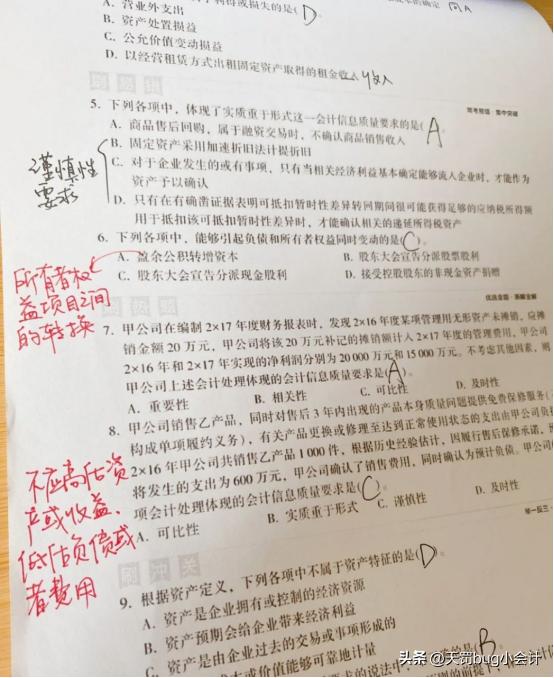 A. 营业外支出
B. 资产处置损益
C. 公允价值变动损益
D. 以经营租赁方式出租固定资产取得的租金收入 收入
5. 下列各项中，体现了实质重于形式这一会计信息质量要求的是( A
常考频错·集中突破
A. 商品售后回购，属于融资交易时，不确认商品销售收入
B. 固定资产采用加速折旧法计提折旧
C. 对于企业发生的或有事项，只有当相关经济利益基本确定能够流入企业时，才能作为
资产予以确认
D. 只有在有确凿证据表明可抵扣暂时性差异转回期间很可能获得足够的应纳税所得额
用于抵扣该可抵扣暂时性差异时，才能确认相关的递延所得税资产
谨慎性
要求
6. 下列各项中，能够引起负债和所有者权益同时变动的是( C )
A. 盈余公积转增资本
B. 股东大会宣告分派股票股利
C. 股东大会宣告分派现金股利
D. 接受控股股东的非现金资产捐赠
所有者权
益项目之间
的转换
优选金题·高瞻全解
7. 甲公司在编制 2×17 年度财务报表时，发现 2×16 年度某项管理用无形资产未摊销，应摊
销金额 20 万元，甲公司将该 20 万元补记的摊销额计入 2×17 年度的管理费用，甲公司
2×16 年和 2×17 年实现的净利润分别为 20 000 万元和 15 000 万元。不考虑其他因素，则
甲公司上述会计处理体现的会计信息质量要求是( A )
A. 重要性
B. 相关性
C. 可比性
D. 及时性
8. 甲公司销售乙产品，同时对售后 3 年内出现的产品本身质量问题提供免费保修服务(
构成单项履约义务)，有关产品更换或修理至达到正常使用状态的支出由甲公司负
2×16 年甲公司共销售乙产品 1 000 件，根据历史经验估计，因履行售后保修承诺，预
将发生的支出为 600 万元，甲公司确认了销售费用，同时确认为预计负债。甲公司
项会计处理体现的会计信息质量要求是( C )
A. 可比性
B. 实质重于形式
C. 谨慎性
D. 及时性
不应高估资
产或收益、
低估负债或
者费用
刷 冲 关
举一反三·
9. 根据资产定义，下列各项中不属于资产特征的是( D )
A. 资产是企业拥有或控制的经济资源
B. 资产预期会给企业带来经济利益
C. 资产是由企业过去的交易或事项形成的
本或价值能够可靠地计量
B
头条 @天罚bug小会计